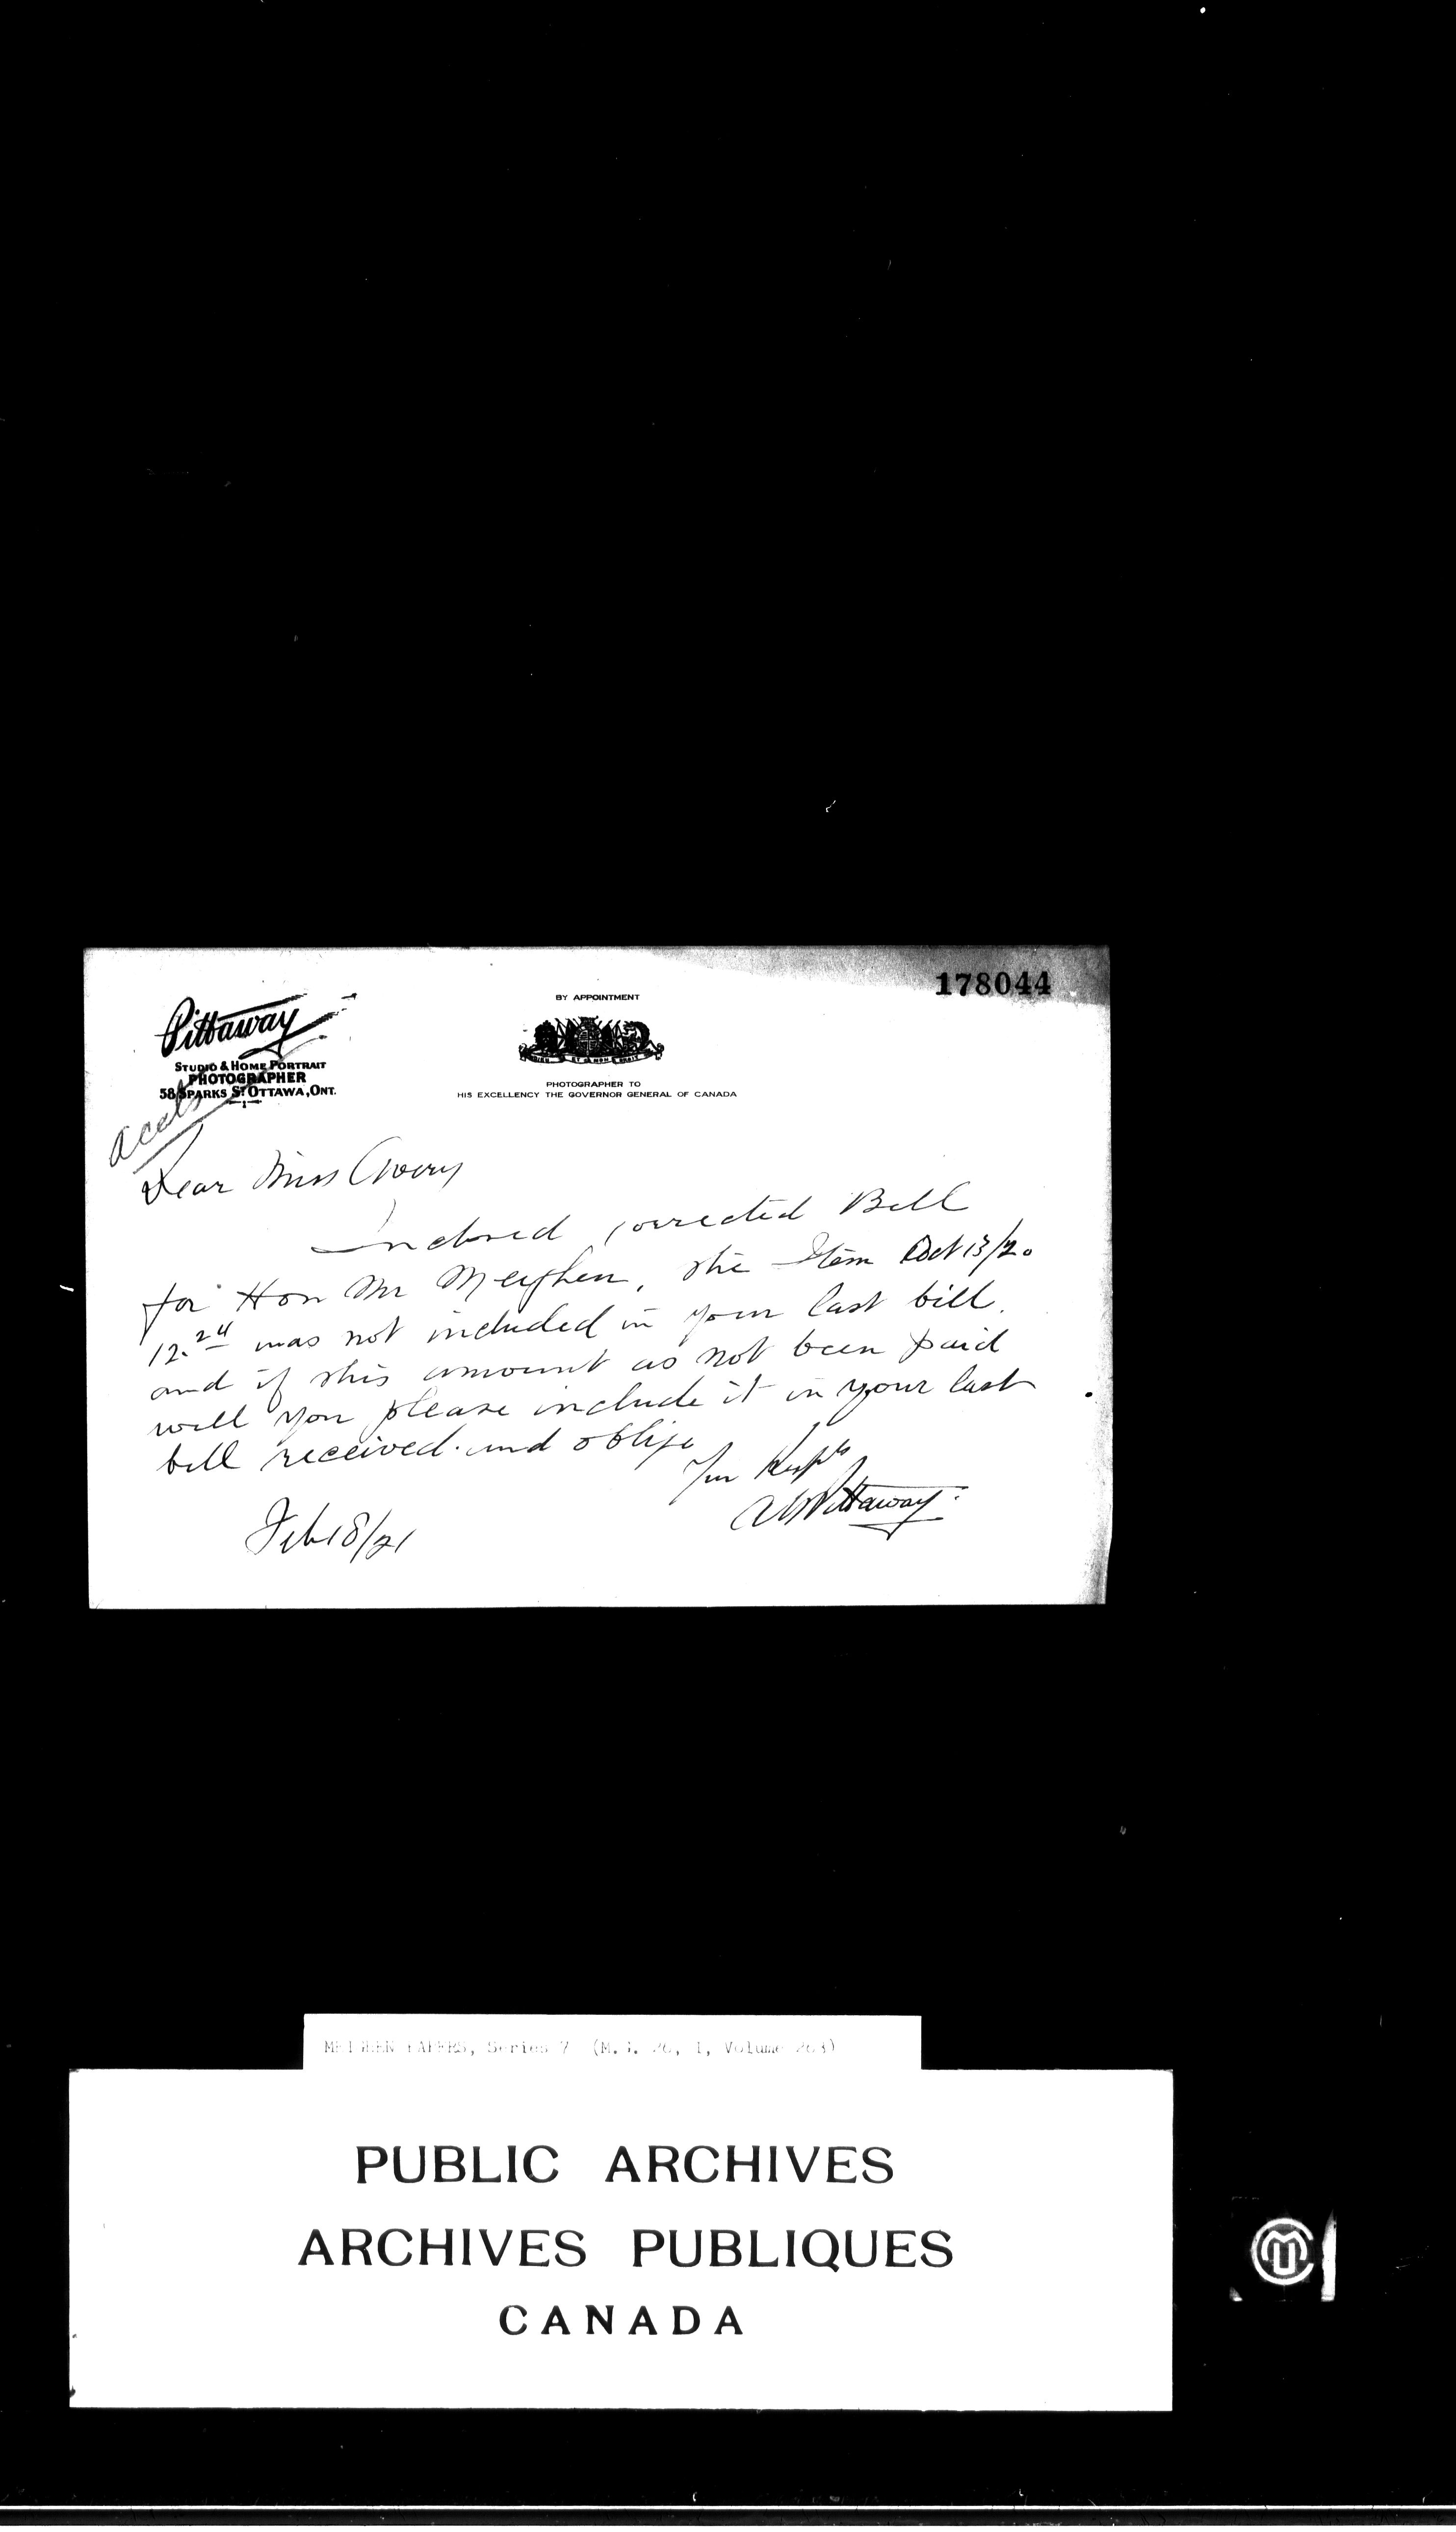 178044
Pittaway
STUDIO & HOME PORTRAIT
PHOTOGRAPHER
58 SPARKS ST OTTAWA, ONT.
BY APPOINTMENT
PHOTOGRAPHER TO
HIS EXCELLENCY THE GOVERNOR GENERAL OF CANADA
accts
Dear Miss Avery
Inclosed corrected Bill
for Hon Mr Meighen, the Item Oct 13/20
12.24 was not included in your last bill.
and if this amount as not been paid
will you please include it in your last
bill received. and oblige
Pittaway
Feb 18/21
MEIGHEN PAPERS, Series 7 (M.G. 26, I, Volume
PUBLIC ARCHIVES
ARCHIVES PUBLIQUES
CANADA